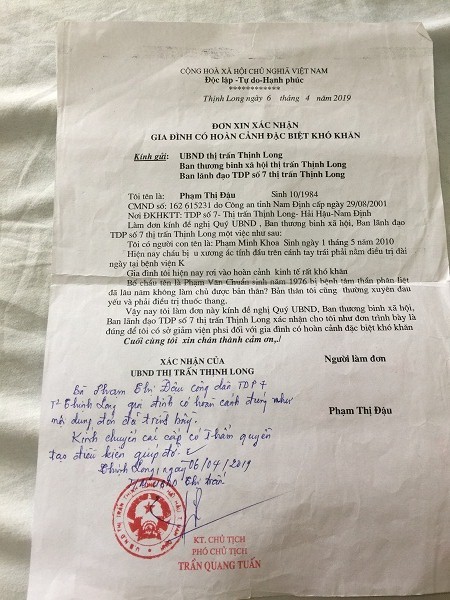 CỘNG HOÀ XÃ HỘI CHỦ NGHĨA VIỆT NAM
Độc lập -Tự do-Hạnh phúc
************
Thịnh Long ngày 6 tháng 4 năm 2019
ĐƠN XIN XÁC NHẬN
GIA ĐÌNH CÓ HOÀN CẢNH ĐẶC BIỆT KHÓ KHĂN
Kính gửi: UBND thị trấn Thịnh Long
Ban thương binh xã hội thị trấn Thịnh Long
Ban lãnh đạo TDP số 7 thị trấn Thịnh Long
Tôi tên là: Phạm Thị Đậu Sinh 10/1984
CMND số: 162 615231 do Công an tỉnh Nam Định cấp ngày 29/08/2001
Nơi ĐKHKTT: TDP số 7- Thị trấn Thịnh Long- Hải Hậu-Nam Định
Làm đơn kính đề nghị Quý UBND , Ban thương binh xã hội, Ban lãnh đạo
TDP số 7 thị trấn Thịnh Long một việc như sau:
Tôi có người con tên là: Phạm Minh Khoa Sinh ngày 1 tháng 5 năm 2010
Hiện nay cháu bị u xương ác tính đầu trên cánh tay trái phải nằm điều trị dài
ngày tại bệnh viện K
Gia đình tôi hiện nay rơi vào hoàn cảnh kinh tế rất khó khăn
Bố cháu tên là Phạm Văn Chuẩn sinh năm 1976 bị bệnh tâm thần phân liệt
đã lâu năm không làm chủ được bản thân? Bản thân tôi cũng thường xuyên đau
yếu và phải điều trị thuốc thang.
Vậy nay tôi làm đơn này kính đề nghị Quý UBND, Ban thương binh xã hội,
Ban lãnh đạo TDP số 7 thị trấn Thịnh Long xác nhận cho tôi như đơn trình bày là
đúng để tôi có sở giảm viện phí đối với gia đình có hoàn cảnh đặc biệt khó khăn
Cuối cùng tôi xin chân thành cảm ơn,/
XÁC NHẬN CỦA
UBND THỊ TRẤN THỊNH LONG
Người làm đơn
Bà Phạm Thị Đậu công dân TDP 7
T² Thịnh Long gia đình có hoàn cảnh đúng như
nội dung đơn đã trình bày.
Kính chuyển các cấp có thẩm quyền
tạo điều kiện giúp đỡ.
Thịnh Long, ngày 06/04/2019
Phạm Thị Đậu
KT. CHỦ TỊCH
PHÓ CHỦ TỊCH
TRẦN QUANG TUẤN